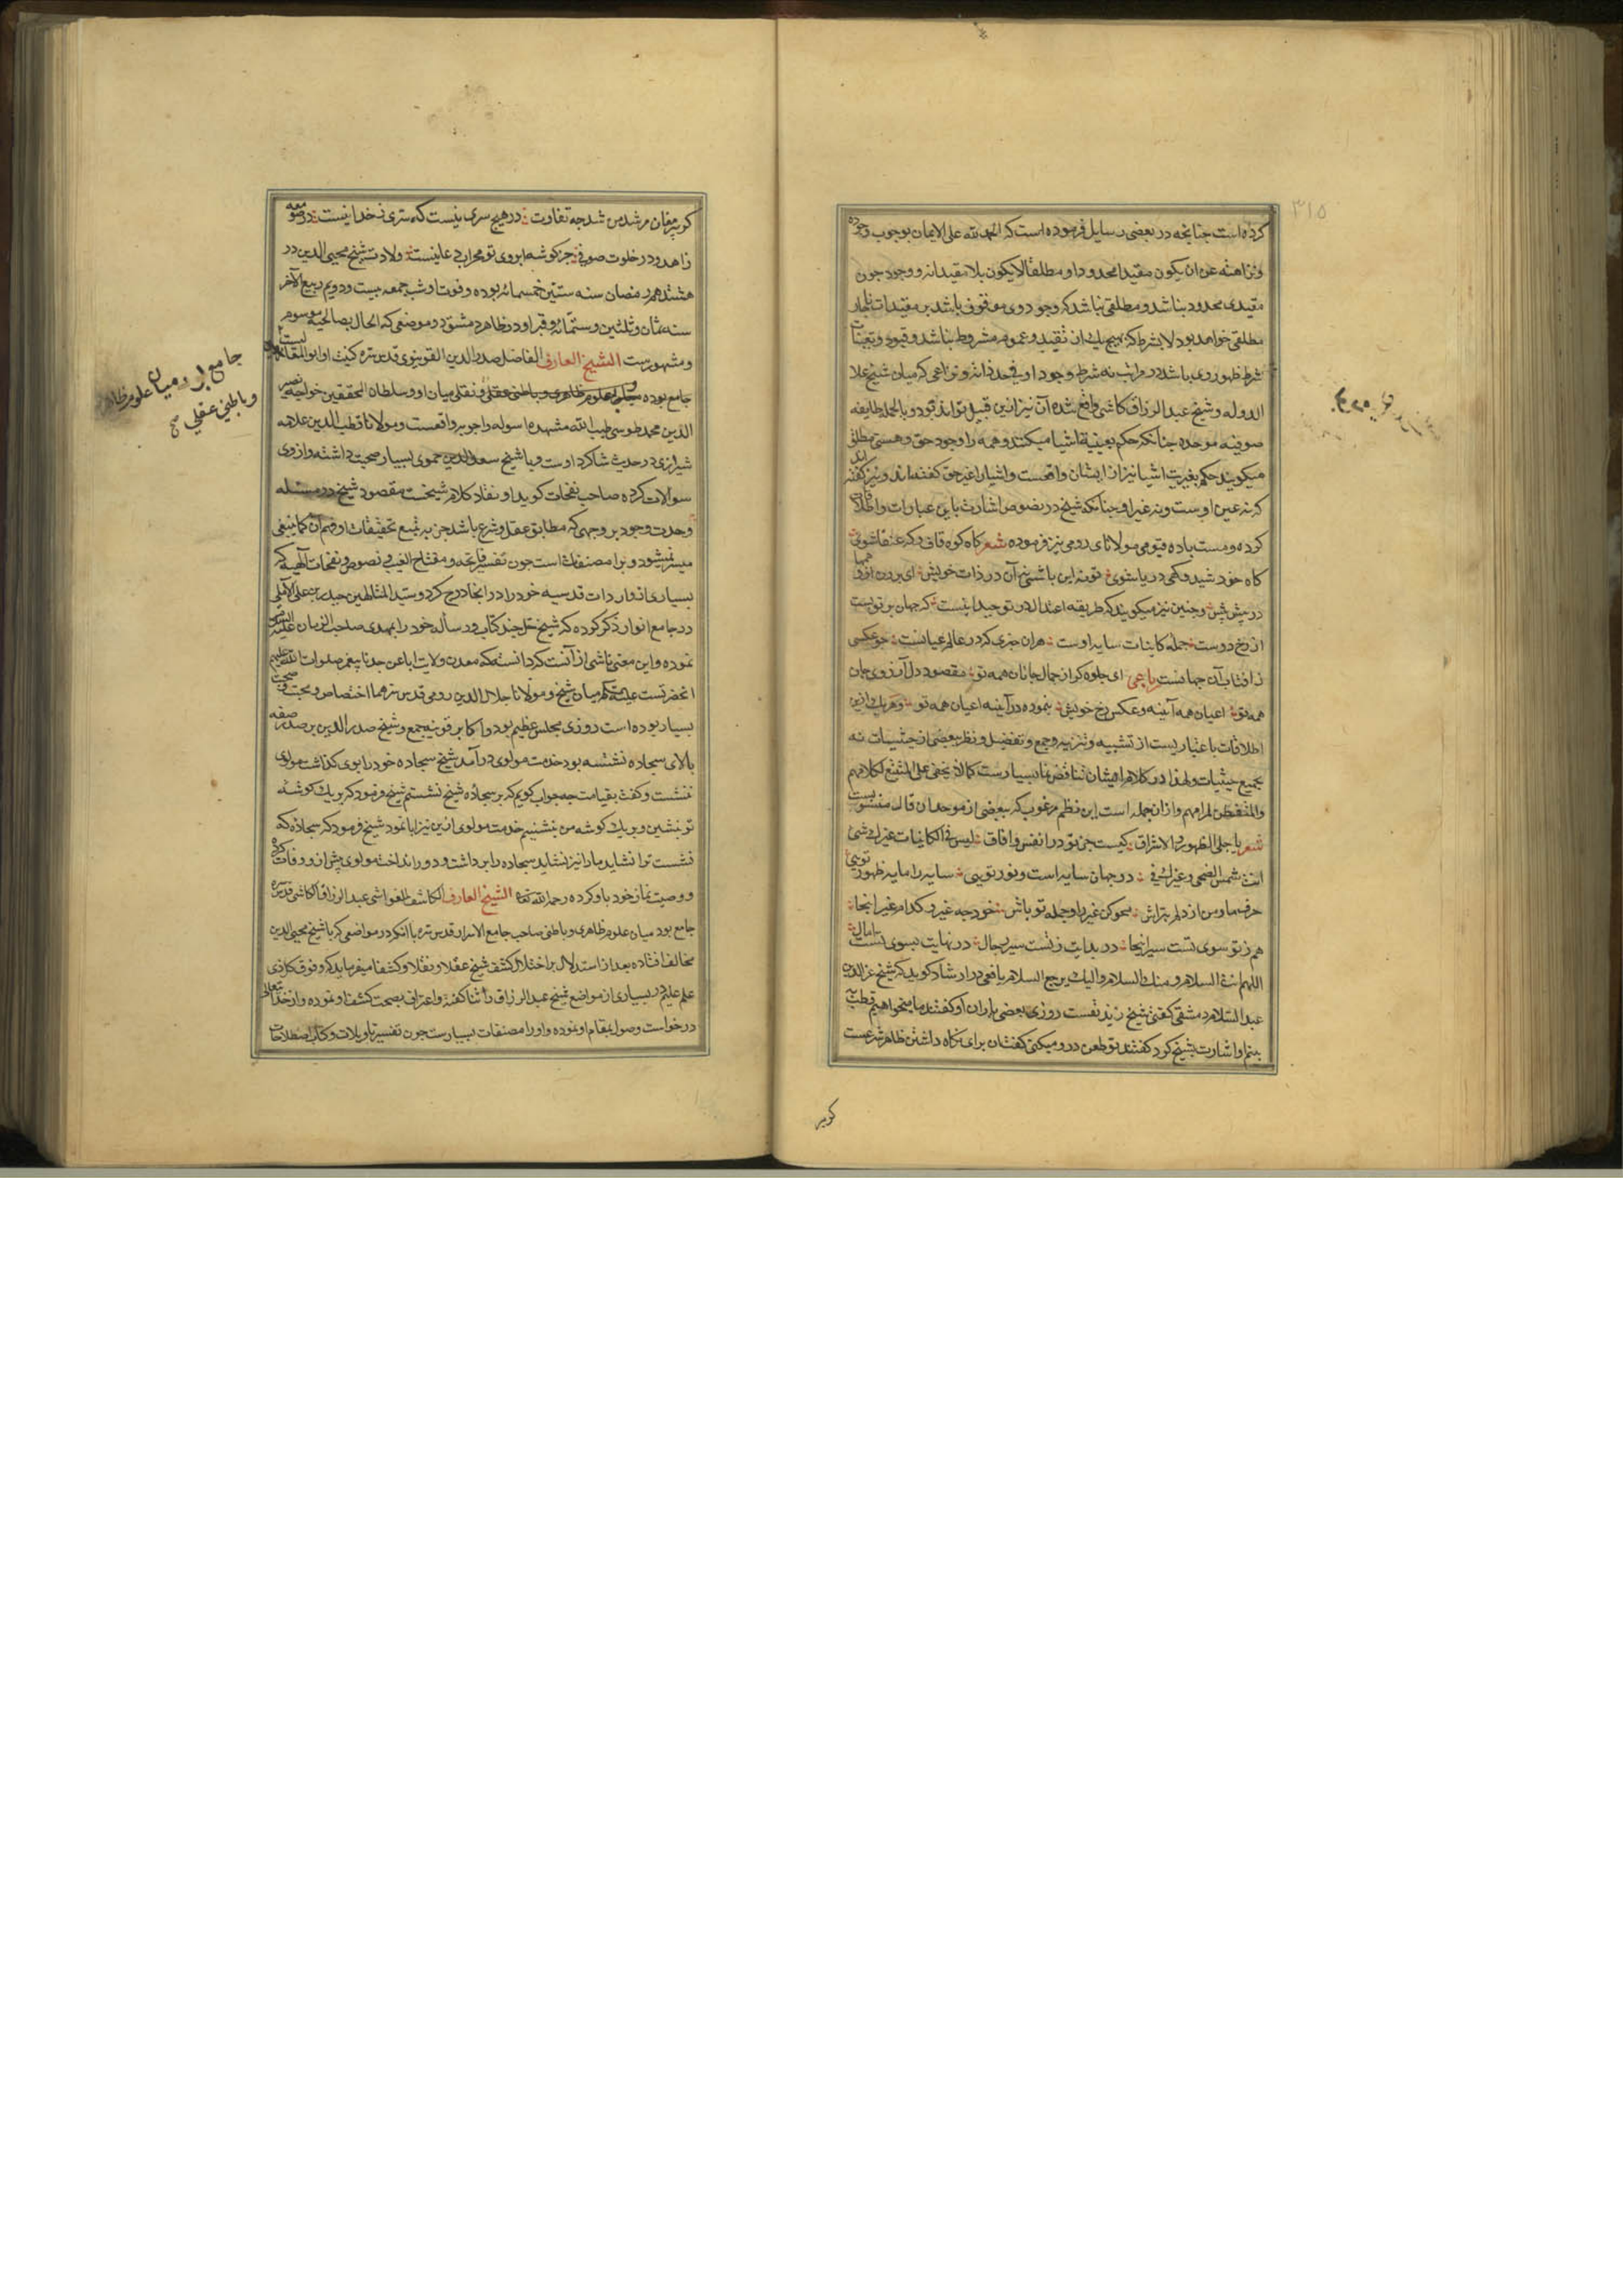 ۳۱۵
کرده است چنانچه در بعضی رسایل فرموده است که الحمد لله علی الایمان بوجوب وجوده
ونزاهته عن ان یکون مقیدا محدودا و مطلقا لا یکون بلا مقیداته و وجود چون
مقیدی محدود نباشد و مطلقی نباشد که وجود وی موقوف باشد بر مقیدات ناچار
مطلقی خواهد بود لا بشرط که بهیچ یک از تقید و عموم مشروط نباشد و قیود و تعینات
شرط ظهور وی باشد در مراتب نه شرط وجود او فی حد ذاته و نزاعی که میان شیخ علا
الدوله و شیخ عبد الرزاق کاشی واقع شده آن نیز ازین قبیل تواند بود و بالجمله طایفه
صوفیه موحده چنانکه حکم بعینیه اشیا میکنند و همه را وجود حق و هستی مطلق
میکویند حکم بغیریت اشیا نیز از ایشان واقعست و اشیا را غیر حق کفته‌اند و نیز کفته اند
که نه عین اوست و نه غیر او چنانکه شیخ در نصوص اشارت باین عبارات و اطلاقات
کرده و مست باده قیومی مولانای رومی نیز فرموده شعر کاه کوه قاف و که عنقا شوی
کاه خورشید و کهی دریا شوی تو نه این باشی نه آن در ذات خویش ای برون از وهمها
در پیش پیش و چنین نیز میکویند که طریقه اعتدال در توحید اینست که جهان پرتویست
از رخ دوست جمله کاینات سایه اوست هر ان چیزی که در عالم عیانست چو عکسی
ز افتاب آن جهانست رباعی ای جلوه کر از جمال جانان همه تو مقصود دل آرزوی جان
همه تو اعیان همه آینه و عکس رخ خویش بنموده در آینه اعیان همه تو و هر یک ازین
اطلاقات باعتباریست از تشبیه و تنزیه و جمع و تفضیل و نظر ببعضی از حیثیات نه
بجمیع حیثیات و لهذا در کلام ایشان تناقض نما بسیارست کما لا یخفی علی المتتبع لکلامهم
والمتفطن لمرامهم و از ان جمله است این نظم مرغوب که ببعضی از موحدان قال منسوبست
شعر یا جلی الظهور والاشراق کیست جز تو در انفس و افاق لیس فی الکاینات غیرک شی
انت شمس الضحی و غیرک فی در جهان سایه است و نور تویی سایه را مایه ظهور تویی
حرف ما و من از دلم بتراش محو کن غیر را و جمله تو باش خود چه غیر و کدام غیر اینجا
هم ز تو سوی تست سیر اینجا در بدایت ز تست سیر رجال در نهایت بسوی تست امال
اللهم انت السلام و منک السلام والیک یرجع السلام یافعی در ارشاد کوید که شیخ عز الدین
عبد السلام دمشقی کفتی شیخ زندیقست روزی بعضی یاران او کفتند ما میخواهیم قطب
بینم او اشارت بشیخ کرد کفتند تو طعن در و میکنی کفت ان برای نکاه داشتن ظاهر شرعست
کر پیر
کر پیر مغان مرشد من شد چه تفاوت در هیچ سری نیست که سری ز خدا نیست در صومعه
زاهد و در خلوت صوفی جز کوشه ابروی تو محراب دعا نیست ولادت شیخ محیی الدین در
هشتدهم رمضان سنه ستین خمسمائه بوده و فوت او شب جمعه بیست و دویم ربیع الآخر
سنه ثمان و ثلثین و ستمائه و قبر او در ظاهر دمشق در موضعی که الحال بصالحیه موسوم
و مشهورست الشیخ العارف الفاضل صدر الدین القونیوی قدس سره کنیت او ابو المعالیست
جامع بوده میان علوم ظاهری و باطنی و عقلی و نقلی میان او و سلطان المحققین خواجه نصیر
الدین محمد طوسی طیب الله مشهده اسوله و اجوبه واقعست و مولانا قطب الدین علامه
شیرازی در حدیث شاکرد اوست و با شیخ سعد الدین حموی بسیار صحبت داشته و از وی
سوالات کرده صاحب نفحات کوید او نقاد کلام شیخست مقصود شیخ در مسئله
وحدت وجود بر وجهی که مطابق عقل و شرع باشد جز به تتبع تحقیقات او و فهم آن کما ینبغی
میسر نمیشود و برا مصنفات است چون تفسیر فاتحه و مفتاح الغیب و نصوص و نفحات الهیه که
بسیاری از واردات قدسیه خود را در انجا درج کرد و سید المتالهین حیدر بن علی الآملی
در جامع انوار ذکر کرده که شیخ حل چند کتاب و رساله خود را بمهدی صاحب الزمان علیه السلام
نموده و این معنی ناشی از آنست که دانسته که معدن ولایت ابا عن جد تا پیغمبر صلوات الله علیهم
انحضرتست علیه السلام میان شیخ و مولانا جلال الدین رومی قدس سرهما اختصاص و محبت و صحبت
بسیار بوده است روزی مجلس عظیم بود و اکابر قونیه جمع و شیخ صدر الدین بر صدر صفه
بالای سجاده نشسته بود خدمت مولوی در آمد شیخ سجاده خود را بوی کذاشت مولوی
ننشست و کفت بقیامت چه جواب کویم که بر سجاده شیخ نشستم شیخ فرمود که بر یک کوشه
تو بنشین و بر یک کوشه من بنشینم خدمت مولوی ازین نیز ابا نمود شیخ فرمود که سجاده که
نشست ترا نشاید ما را نیز نشاید سجاده را برداشت و دور انداخت مولوی پیش از و وفات کرده
و وصیت نماز خود باو کرده رحمه الله تعالی الشیخ العارف الکاشف الغواشی عبد الرزاق الکاشی قدس سره
جامع بود میان علوم ظاهری و باطنی صاحب جامع الاسرار قدس سره با آنکه در مواضعی که با شیخ محیی الدین
مخالف افتاده بعد از استدلال بر اختلال کشف شیخ عقلا و نقلا و کشفا میفرماید که و فوق کل ذی
علم علیم در بسیاری از مواضع شیخ عبد الرزاق را ثنا کفته و اعتراف بصحت کشف او نموده و از خدا تعالی
درخواست وصول بمقام او نموده و او را مصنفات بسیارست چون تفسیر تاویلات و کتاب اصطلاحات
جامع بود میان علوم ظاهر
و باطنی عقلی صح